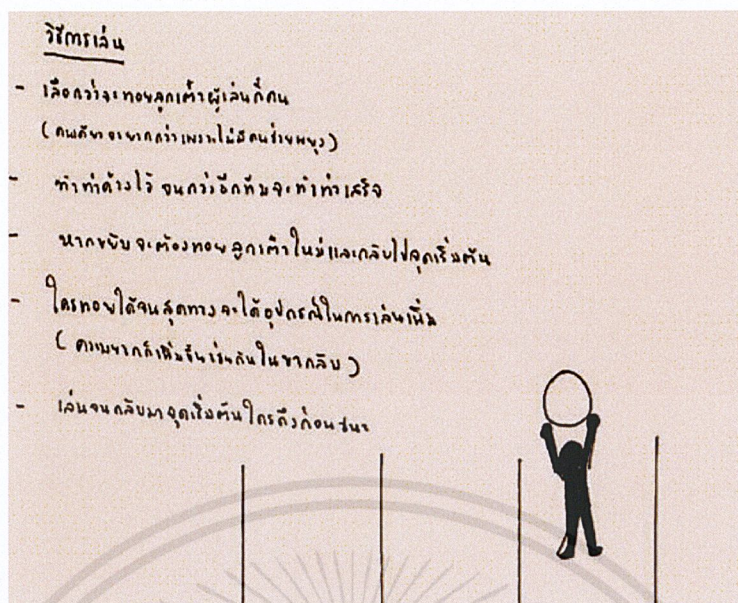 วิธีการเล่น
- เลือกว่าจะทอยลูกเต๋าผู้เล่นกี่คน
(คนเดียวจะยากกว่าเพราะไม่มีคนช่วยพยุง)
- ทำท่าค้างไว้ จนกว่าอีกทีมจะทำท่าเสร็จ
- หากขยับจะต้องทอยลูกเต๋าใหม่และกลับไปจุดเริ่มต้น
- ใครทอยได้จนสุดทางจะได้อุปกรณ์ในการเล่นเพิ่ม
(ความยากก็เพิ่มขึ้นเช่นกันในขากลับ)
- เล่นจนกลับมาจุดเริ่มต้นใครถึงก่อนชนะ